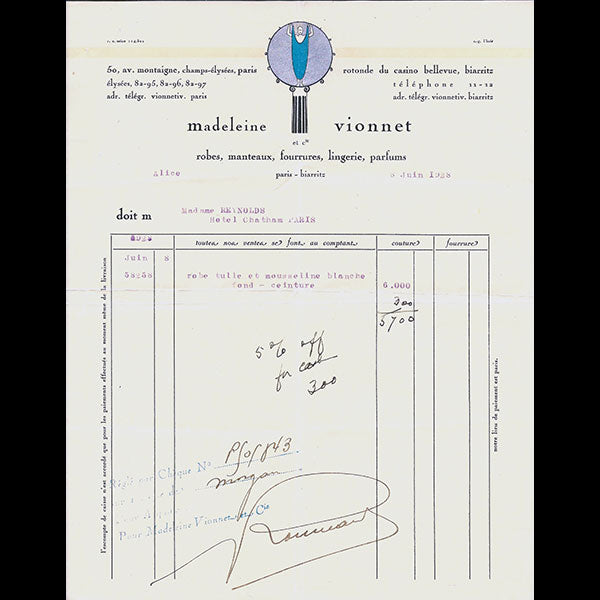 50, av. montaigne, champs-élysées, paris
élysées, 82-95, 82-96, 82-97
adr. télégr. vionnetiv. paris
rotonde du casino bellevue, biarritz
téléphone 11-12
adr. télégr. vionnetiv. biarritz
madeleine vionnet
et cie
robes, manteaux, fourrures, lingerie, parfums
paris - biarritz
alice
8 Juin 1928
doit m Madame REYNOLDS
Hotel Chatham PARIS
1928 toutes nos ventes se font au comptant couture fourrure
Juin 8
58258 robe tulle et mousseline blanche
fond - ceinture 6.000
300
5700
5% off
for cash
300
l'escompte de caisse n'est accordé que pour les paiements effectués au moment même de la livraison
notre lieu de paiement est paris.
Réglé par Chèque No P/o/843
morgan
Pour Madeleine Vionnet et Cie